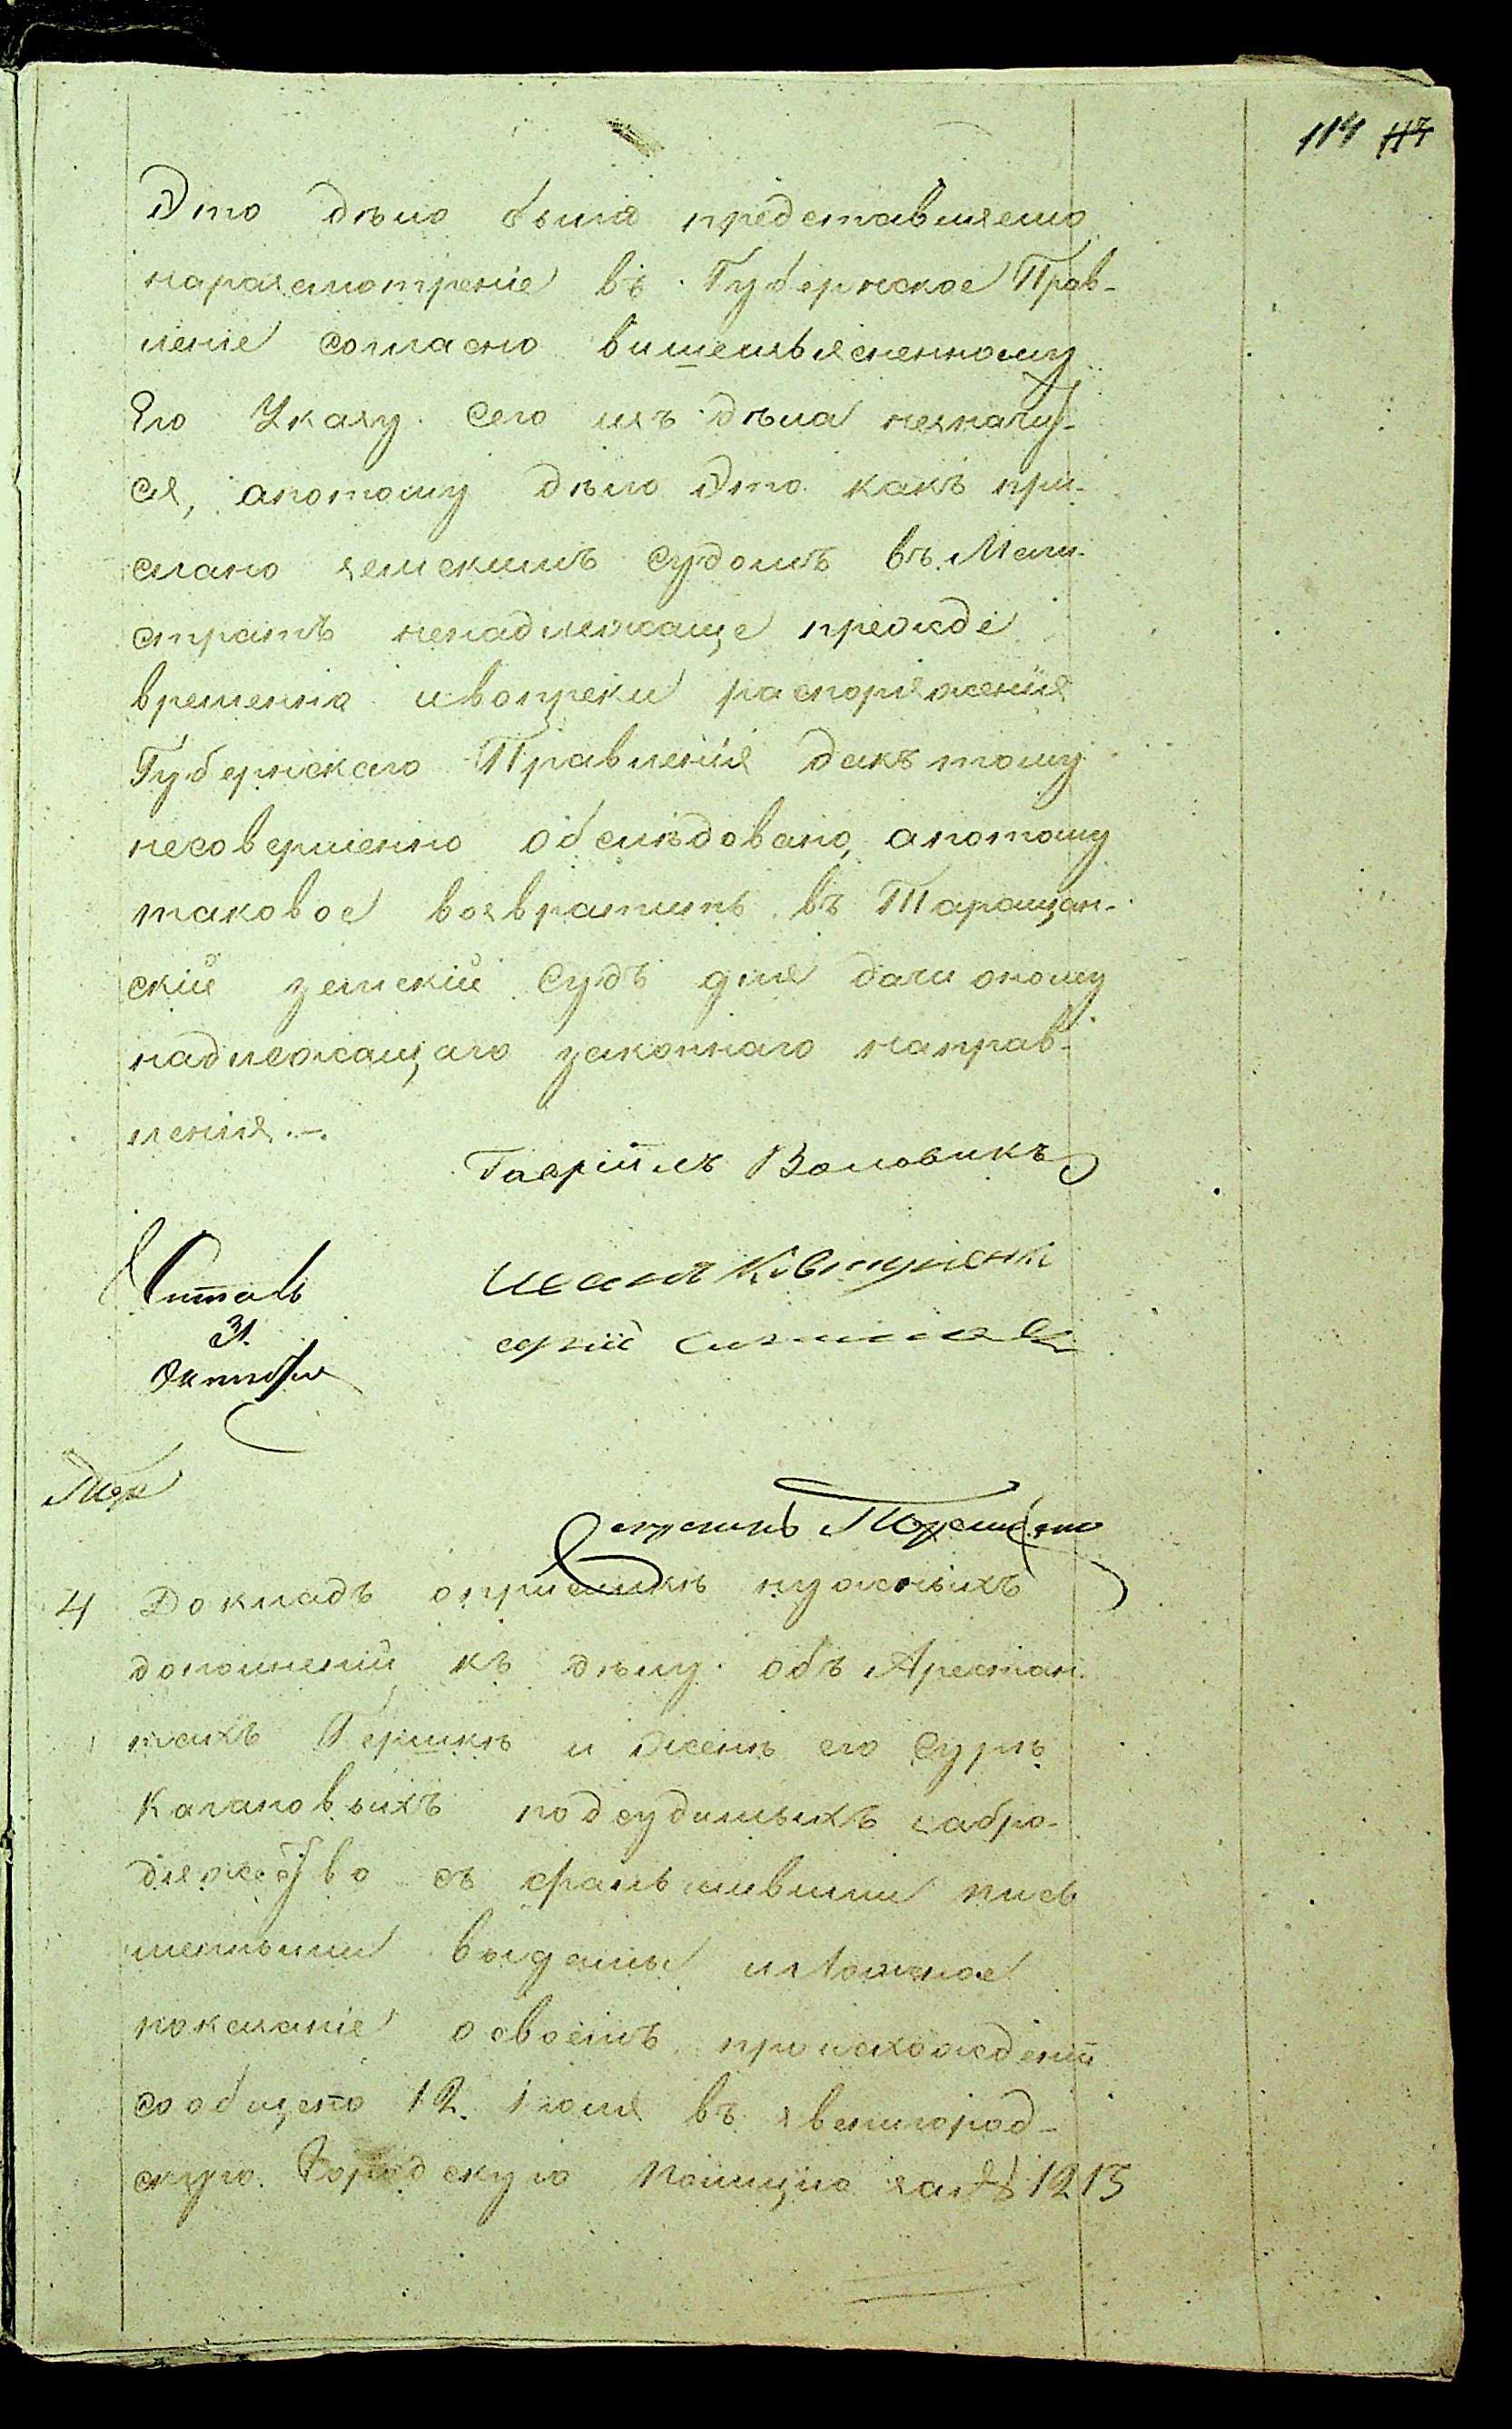 114 117
Это дѣло было представляемо
наразсмотреніе въ Губернское Прав-
леніе согласно вишеизъясненному
Его Указу сего изъ дѣла незначит-
ся, апотому дѣло Это какъ при-
слано земскимъ судомъ въ Маги-
стратъ ненадлежаще прежде
временно ивопреки распоряженія
Губернскаго Правленія дакътому
несовершенно обслѣдовано, апотому
таковое возвратить въ Таращан-
скій земскій Судъ для дачи оному
надлежащаго законнаго направ-
ленія.—
Гавріилъ Воловикъ
Читалъ
31
Октября
Иванъ Ковтуненко
4 Докладъ оприсилкѣ нужныхъ
дополненій къ дѣлу объ Арестан-
тахъ Гершкѣ и женѣ его Сурѣ
Кагановыхъ подсудимыхъ забро-
дяжество съ фальшивыми пись
менными виды и ложное
показаніе освоемъ происхожденіи
сообщено 12 іюля въ звенигород-
скую Городскую Полицію за № 1215